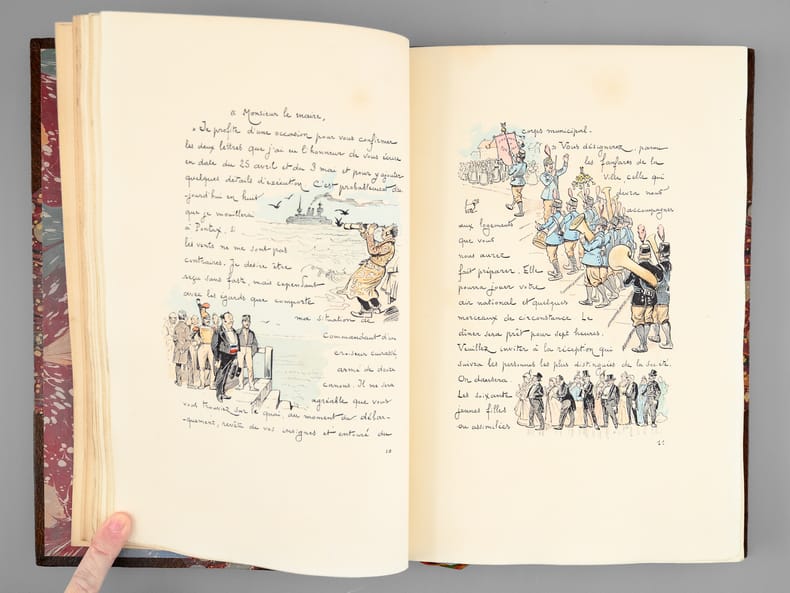 « Monsieur le maire,
» Je profite d'une occasion pour vous confirmer
les deux lettres que j'ai eu l'honneur de vous écrire
en date du 25 avril et du 3 mai et pour y ajouter
quelques détails d'exécution. C'est probablement d'au-
jourd'hui en huit
que je mouillerai
à Pontax, si
les vents ne me sont pas
contraires. Je désire être
reçu sans faste, mais cependant
avec les égards que comporte
ma situation de
Commandant d'un
croiseur cuirassé
armé de deux
canons. Il me sera
agréable que vous
vous trouviez sur le quai, au moment du débar-
quement, revêtu de vos insignes et entouré du
10
corps municipal.
» Vous désignerez, parmi
les fanfares de la
ville celle qui
devra nous
accompagner
aux logements
que vous
nous aurez
fait préparer. Elle
pourra jouer votre
air national et quelques
morceaux de circonstance. Le
dîner sera prêt pour sept heures.
Veuillez inviter à la réception qui
suivra les personnes les plus distinguées de la société.
On dansera
Les soixante
jeunes filles
ou assimilées
11